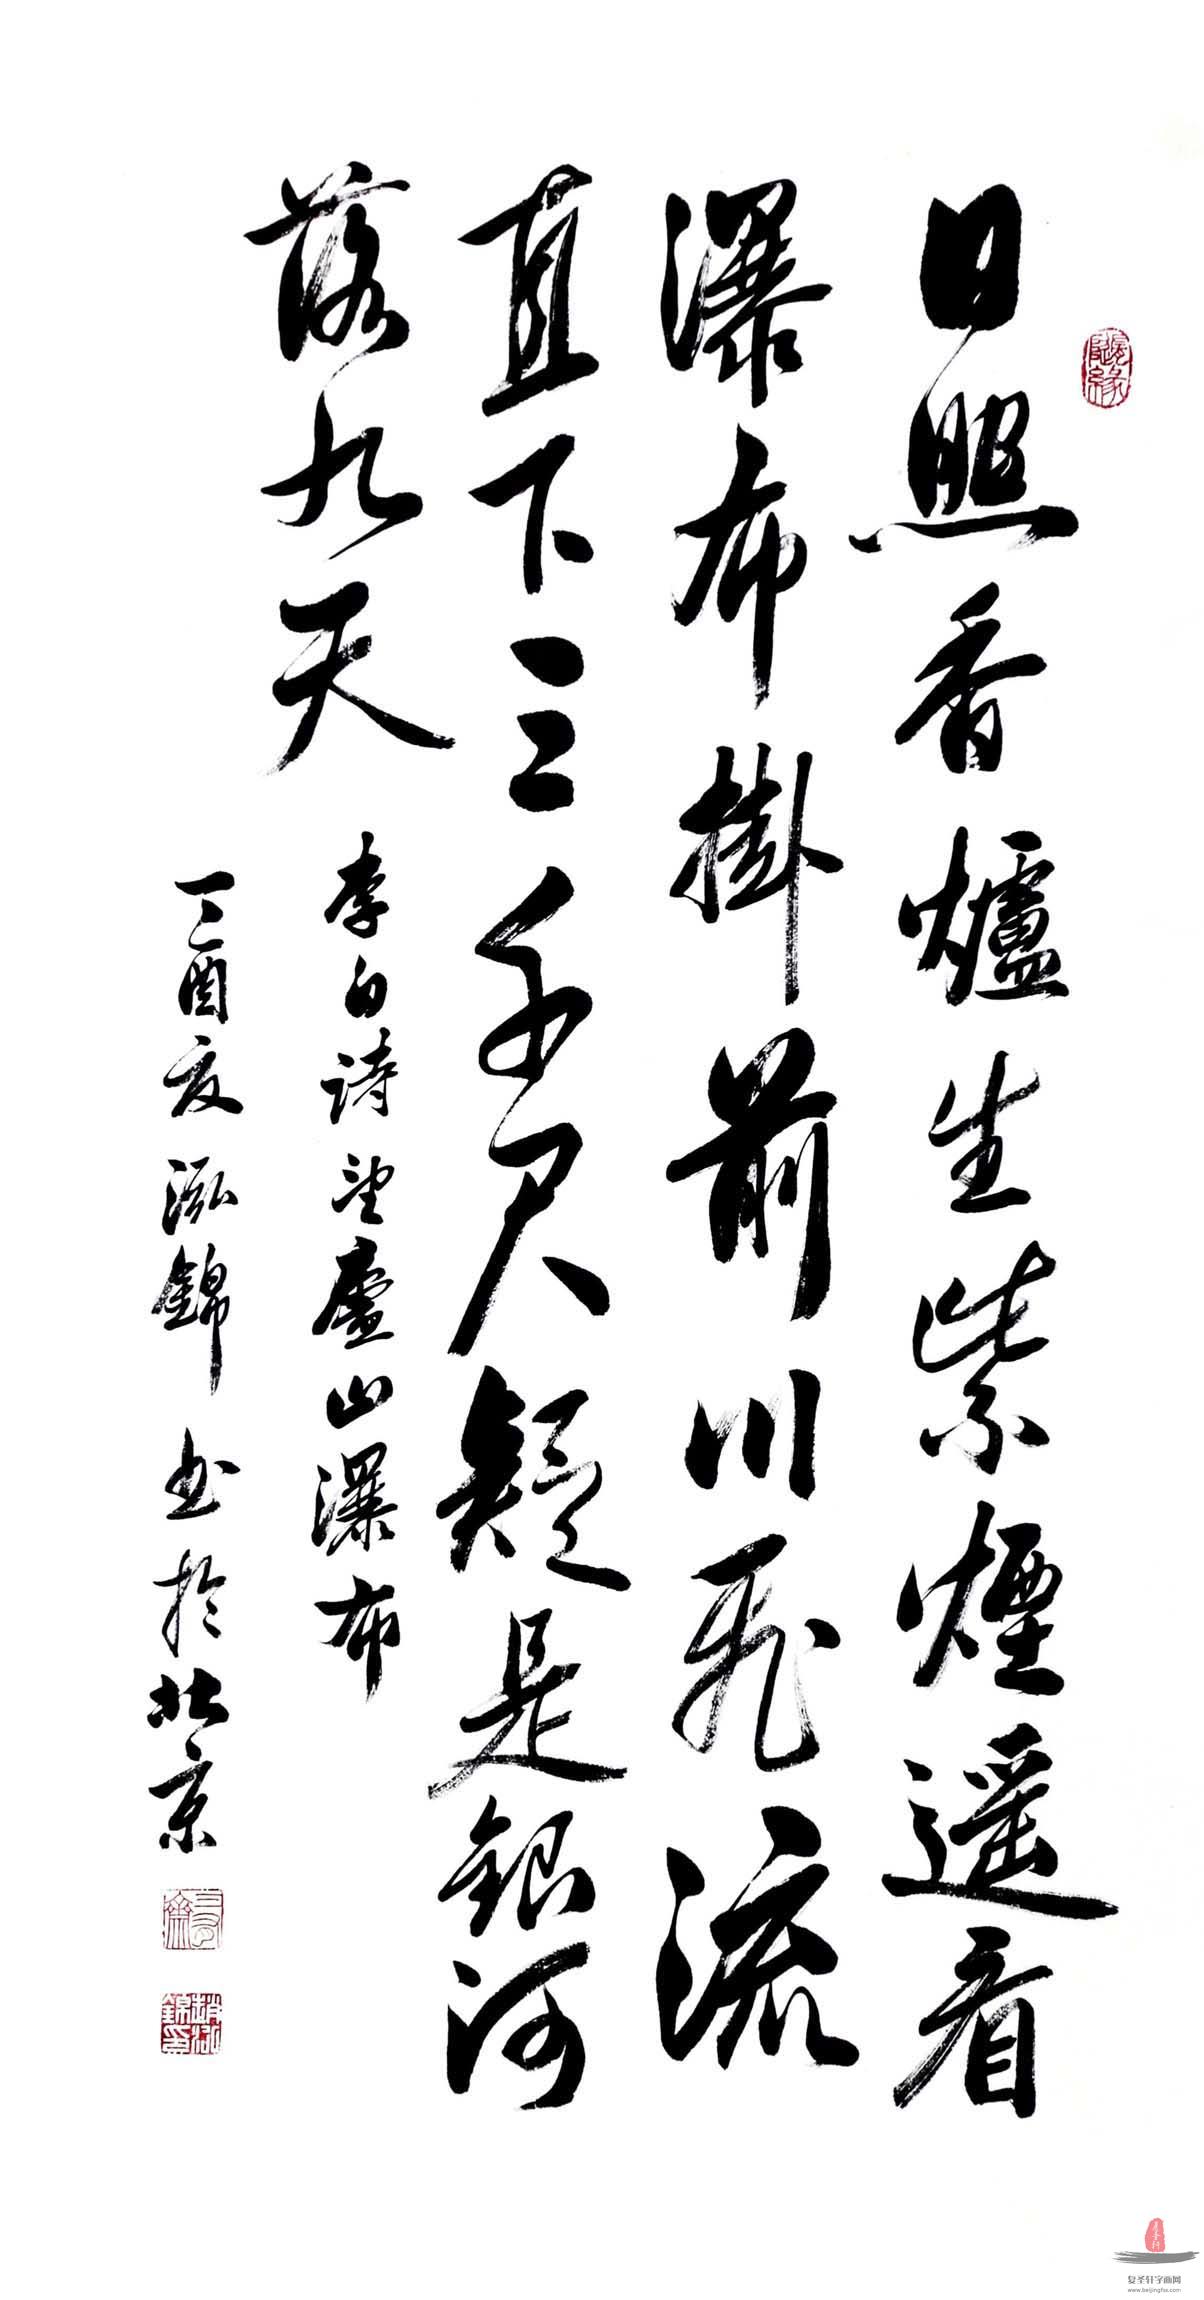 日照香爐生紫煙遥看
瀑布掛前川飛流
直下三千尺疑是銀河
落九天
李白诗望廬山瀑布
丁酉夏泓錦书於北京
复圣轩字画网
www.beijingfsx.com